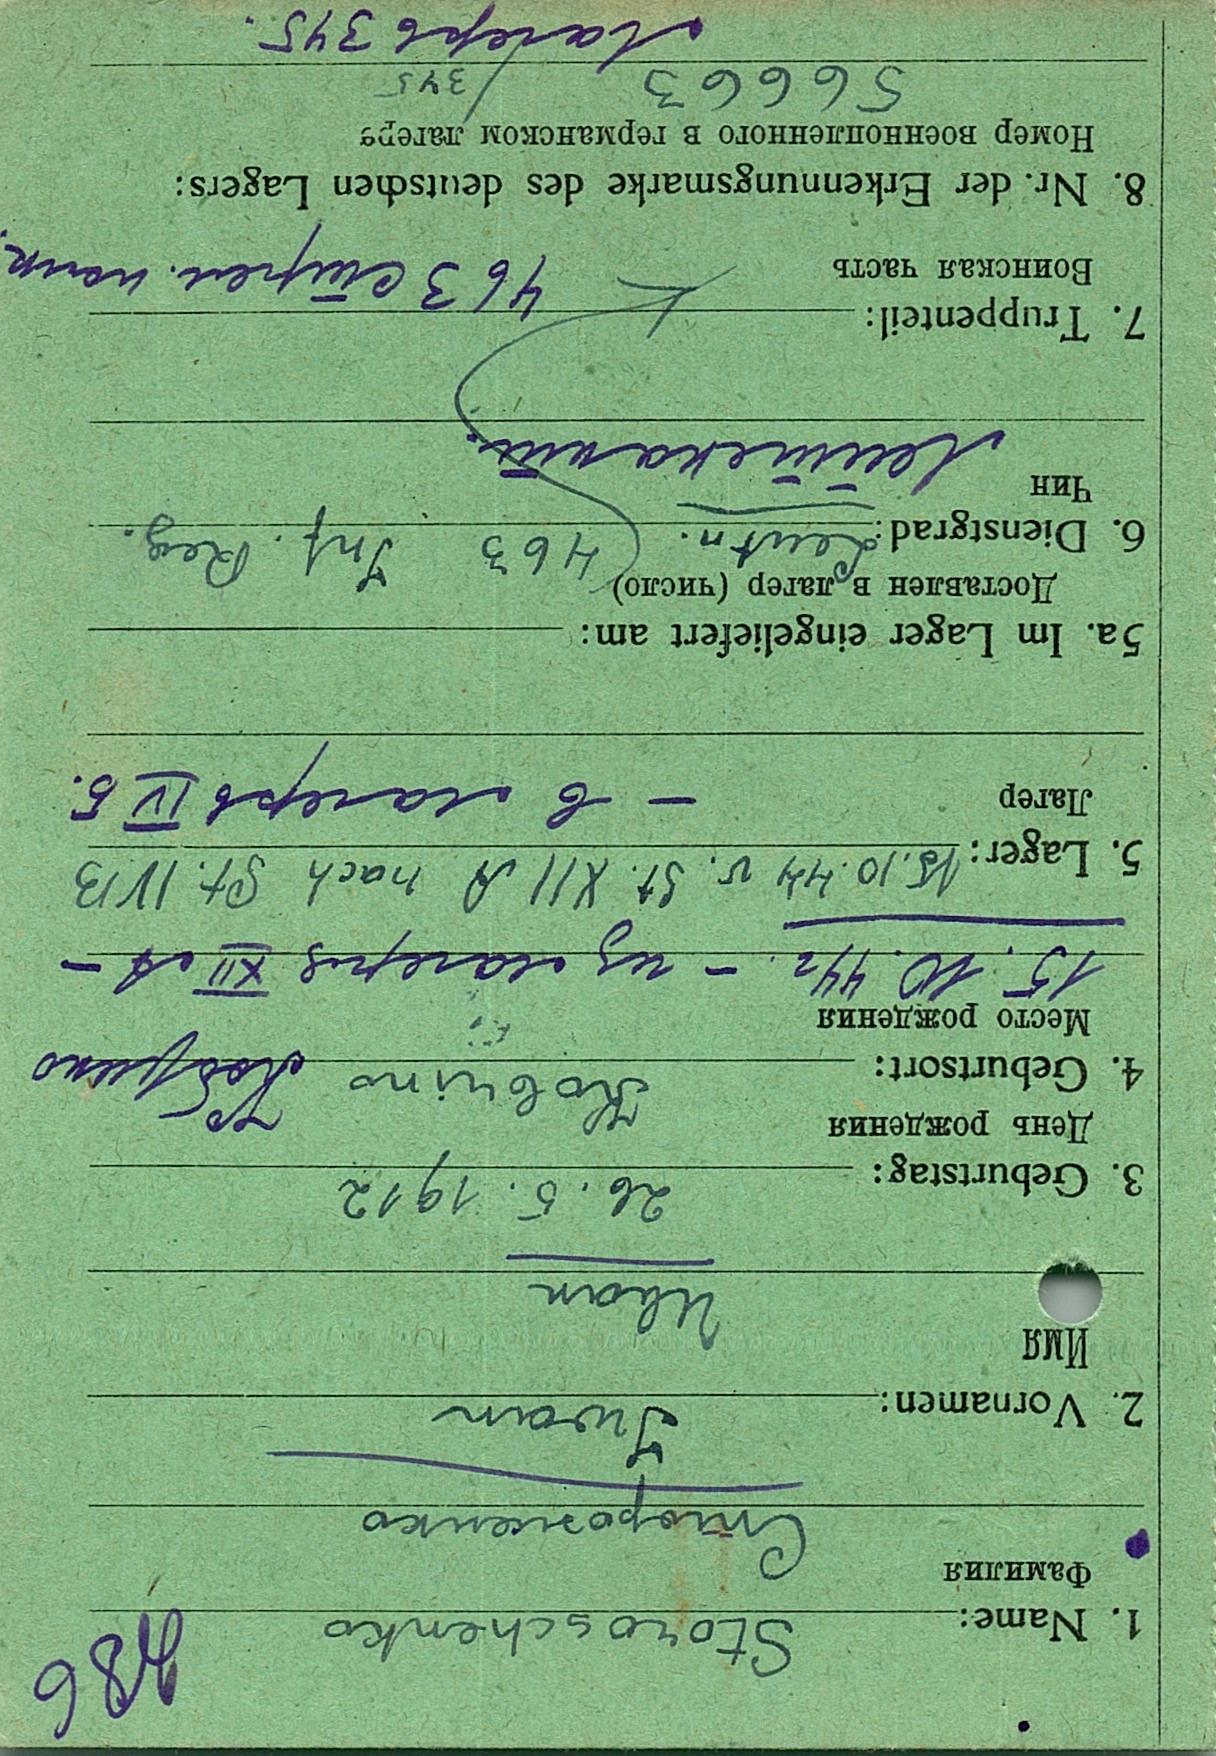 186
1. Name: Storoschenko
Фамилия
Стороженко
2. Vornamen: Iwan
Имя
Иван
3. Geburtstag: 26. 5. 1912
День рождения
4. Geburtsort: Kobrino Кобрино
Место рождения
15. 10. 44г. – из лагеря XII А –
5. Lager: 15.10.44 v. St. XII A nach St. IVB
Лагер – в лагерь IV Б.
5a. Im Lager eingeliefert am:
Доставлен в лагер (число)
6. Dienstgrad: Leutn. 463 Inf. Reg.
Чин
Лейтенант.
7. Truppenteil:
Воинская часть 463 стрел. полк.
8. Nr. der Erkennungsmarke des deutschen Lagers:
Номер военнопленного в германском лагере
56663 / 345
Лагерь 345.